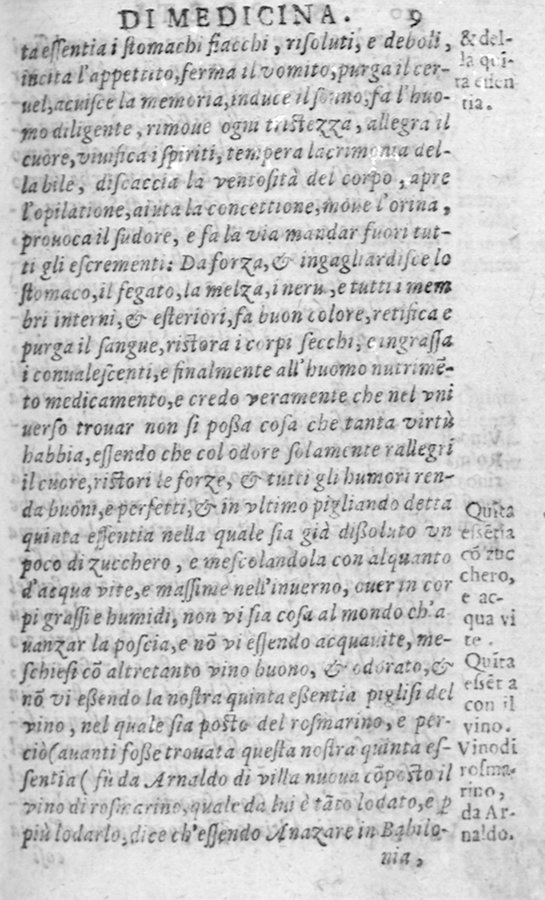 DI MEDICINA. 9
ta essentia i stomachi fiacchi, risoluti, e deboli,
incita l'appettito, ferma il vomito, purga il cer-
uel, acuisce la memoria, induce il sonno, fa l'huo-
mo diligente, rimoue ogni tristezza, allegra il
cuore, viuifica i spiriti, tempera l'acrimonia del-
la bile, discaccia la ventosità del corpo, apre
l'opilatione, aiuta la concettione, moue l'orina,
prouoca il sudore, e fa la via mandar fuori tut-
ti gli escrementi: Da forza, & ingagliardisce lo
stomaco, il fegato, la melza, i nerui, e tutti i mem
bri interni, & esteriori, fa buon colore, retifica e
purga il sangue, ristora i corpi secchi, e ingrassa
i conualescenti, e finalmente all'huomo nutrimẽ-
to medicamento, e credo veramente che nel vni
uerso trouar non si possa cosa che tanta virtù
habbia, essendo che col odore solamente rallegri
il cuore, ristori le forze, & tutti gli humori ren-
da buoni, e perfetti, & in vltimo pigliando detta
quinta essentia nella quale sia già dissoluto vn
poco di zucchero, e mescolandola con alquanto
d'acqua vite, e massime nell'inuerno, ouer in cor
pi grassi e humidi, non vi sia cosa al mondo ch'a
uanzar la poscia, e nõ vi essendo acquauite, me-
schiesi cõ altretanto vino buono, & odorato, &
nõ vi essendo la nostra quinta essentia piglisi del
vino, nel quale sia posto del rosmarino, e per-
ciò (auanti fosse trouata questa nostra quinta es-
sentia ( fù da Arnaldo di villa nuoua cõposto il
vino di rosmarino, quale da lui è tãto lodato, e p
più lodarlo, dice ch'essendo Anazare in Babilo-
nia,
& del-
la qui-
ta essen
tia.
Quĩta
essẽtia
cõ zuc
chero,
e ac-
qua vi
te.
Quĩta
essẽt a
con il
vino.
Vino di
rosma-
rino,
da Ar-
naldo.